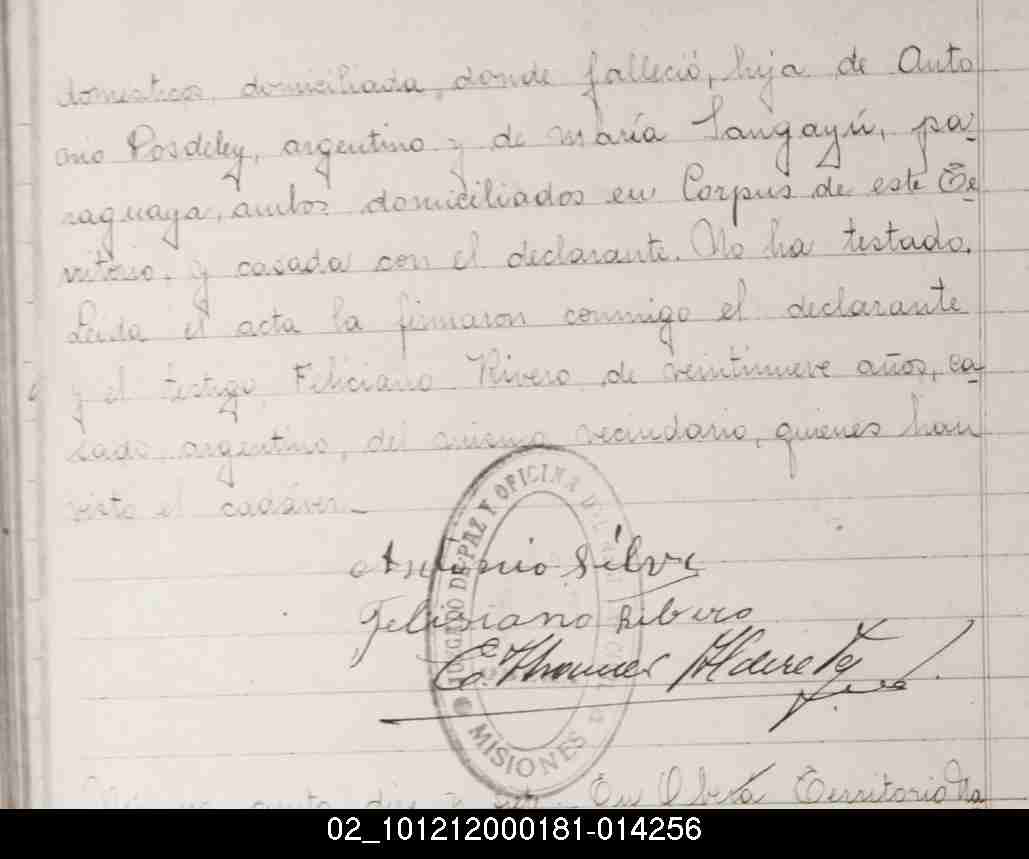 domesticos, domiciliada, donde falleció, hija de Anto
nio Posdeley, argentino y de maría Sangayú, pa-
raguaya, ambos domiciliados en Corpus de este Te
rritorio, y casada con el declarante. No ha testado.
Leida el acta la firmaron conmigo el declarante
y el testigo Feliciano Rivero de veintinueve años, ca-
sado, argentino, del mismo vecindario, quienes han
visto el cadáver.-
Antonio Silva
Felisiano Ribero
E. Thomas Alderete
JUZGADO DE PAZ Y OFICINA DEL
MISIONES
En Obera Territorio Na
02_101212000181-014256